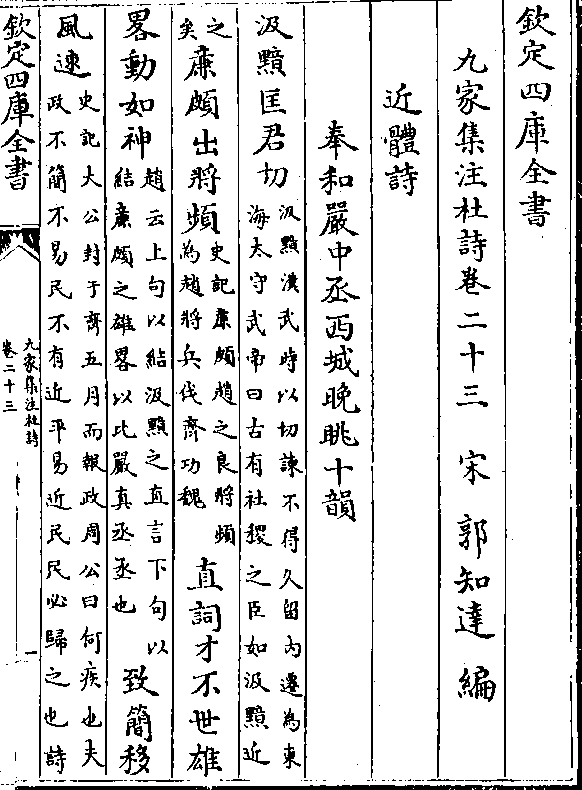 欽定四庫全書
九家集注杜詩卷二十三　宋　郭知達　編
近體詩
奉和嚴中丞西城晚眺十韻
汲黯匡君切
汲黯漢武時以切諫不得久留内遷為東
海太守武帝曰古有社稷之臣如汲黯近
之
矣
廉頗出將頻
史記廉頗趙之良將頻
為趙將兵伐齊功魏
直詞才不世雄
畧動如神
趙云上句以結汲黯之直言下句以
結廉頗之雄畧以比嚴真丞丞也
致簡移
風速
史記大公封于齊五月而報政周公曰何疾也夫
政不簡不易民不有近平易近民民必歸之也詩
欽定四庫全書
九家集注杜詩
卷二十三
一